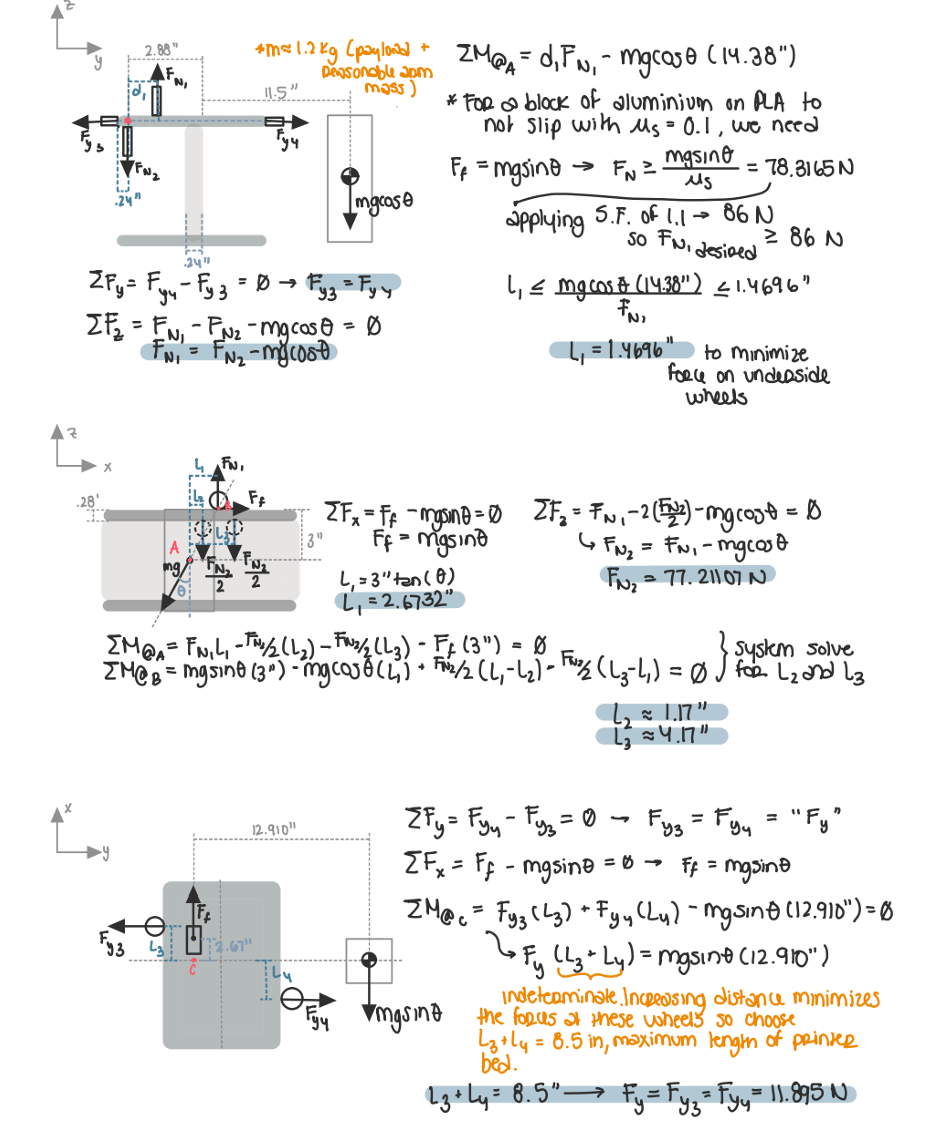 z
y
2.88"
*m≈ 1.2 kg (payload +
reasonable arm
mass)
F_N₁
d₁
11.5"
F_y3
F_y4
F_N₂
.24"
mgcosθ
.24"
ΣF_y = F_y4 - F_y3 = 0 → F_y3 = F_y4
ΣF_z = F_N₁ - F_N₂ - mgcosθ = 0
F_N₁ = F_N₂ - mgcosθ
ΣM_@A = d₁F_N₁ - mgcosθ (14.38")
* For a block of aluminium on PLA to
not slip with μs = 0.1, we need
F_f = mgsinθ → F_N ≥ mgsinθ/μs = 78.3165 N
applying S.F. of 1.1 → 86 N
so F_N₁ desired ≥ 86 N
L₁ ≤ mgcosθ (14.38")/F_N₁ ≤ 1.4696"
L₁ = 1.4696" to minimize
force on underside
wheels
z
x
L₁
F_N₁
L₂
F_f
.28'
L₃
3"
A
mg
θ
F_N₂/2
F_N₂/2
ΣF_x = F_f - mgsinθ = 0
F_f = mgsinθ
L₁ = 3"tan(θ)
L₁ = 2.6732"
ΣF_z = F_N₁ - 2(F_N₂/2) - mgcosθ = 0
↳ F_N₂ = F_N₁ - mgcosθ
F_N₂ = 77.21107 N
ΣM_@A = F_N₁L₁ - F_N₂/2 (L₂) - F_N₂/2 (L₃) - F_f (3") = 0
ΣM_@B = mgsinθ (3") - mgcosθ (L₁) + F_N₂/2 (L₁-L₂) - F_N₂/2 (L₃-L₁) = 0
} system solve
for L₂ and L₃
L₂ ≈ 1.17"
L₃ ≈ 4.17"
x
y
12.910"
F_f
F_y3
L₃
2.67"
C
L₄
F_y4
mgsinθ
ΣF_y = F_y4 - F_y3 = 0 → F_y3 = F_y4 = "F_y"
ΣF_x = F_f - mgsinθ = 0 → F_f = mgsinθ
ΣM_@C = F_y3 (L₃) + F_y4 (L₄) - mgsinθ (12.910") = 0
↳ F_y (L₃ + L₄) = mgsinθ (12.910")
indeterminate. Increasing distance minimizes
the forces at these wheels so choose
L₃ + L₄ = 8.5 in, maximum length of printer
bed.
L₃ + L₄ = 8.5" → F_y = F_y3 = F_y4 = 11.895 N